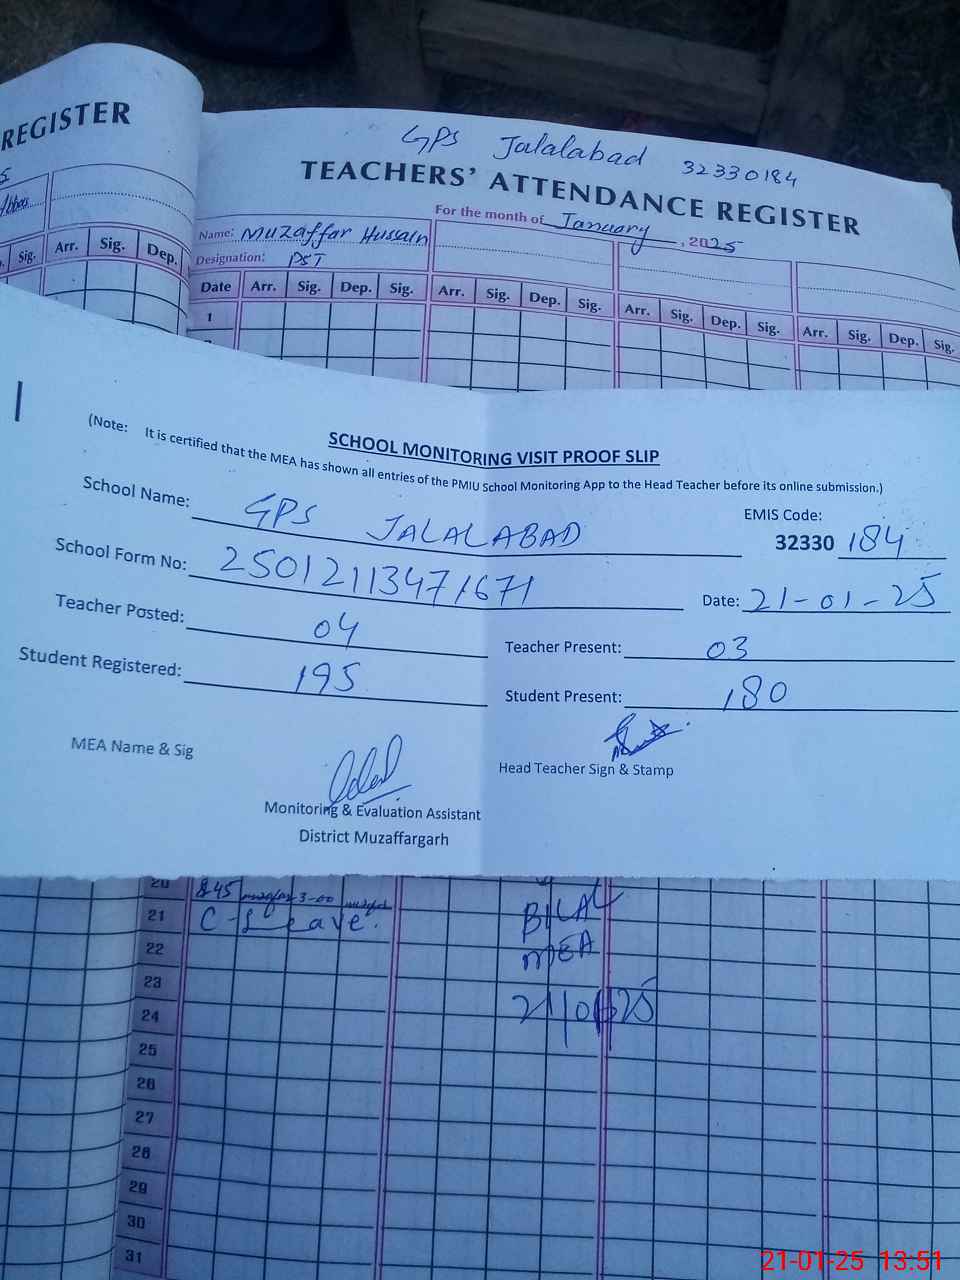 REGISTER
GPS Jalalabad 32330184
TEACHERS' ATTENDANCE REGISTER
For the month of January, 2025
Name: Muzaffar Hussain
Designation: PST
Sig. Arr. Sig. Dep.
Date Arr. Sig. Dep. Sig. Arr. Sig. Dep. Sig. Arr. Sig. Dep. Sig. Arr. Sig. Dep. Sig.
1
SCHOOL MONITORING VISIT PROOF SLIP
(Note: It is certified that the MEA has shown all entries of the PMIU School Monitoring App to the Head Teacher before its online submission.)
School Name: GPS JALALABAD
EMIS Code:
32330 184
School Form No: 25012113471671
Date: 21-01-25
Teacher Posted: 04
Teacher Present: 03
Student Registered: 195
Student Present: 180
MEA Name & Sig
Head Teacher Sign & Stamp
Monitoring & Evaluation Assistant
District Muzaffargarh
20 8:45 3-00
21 C-Leave.
BILAL
22
MEA
23
24
21/01/25
25
26
27
28
29
30
31
21-01-25 13:51